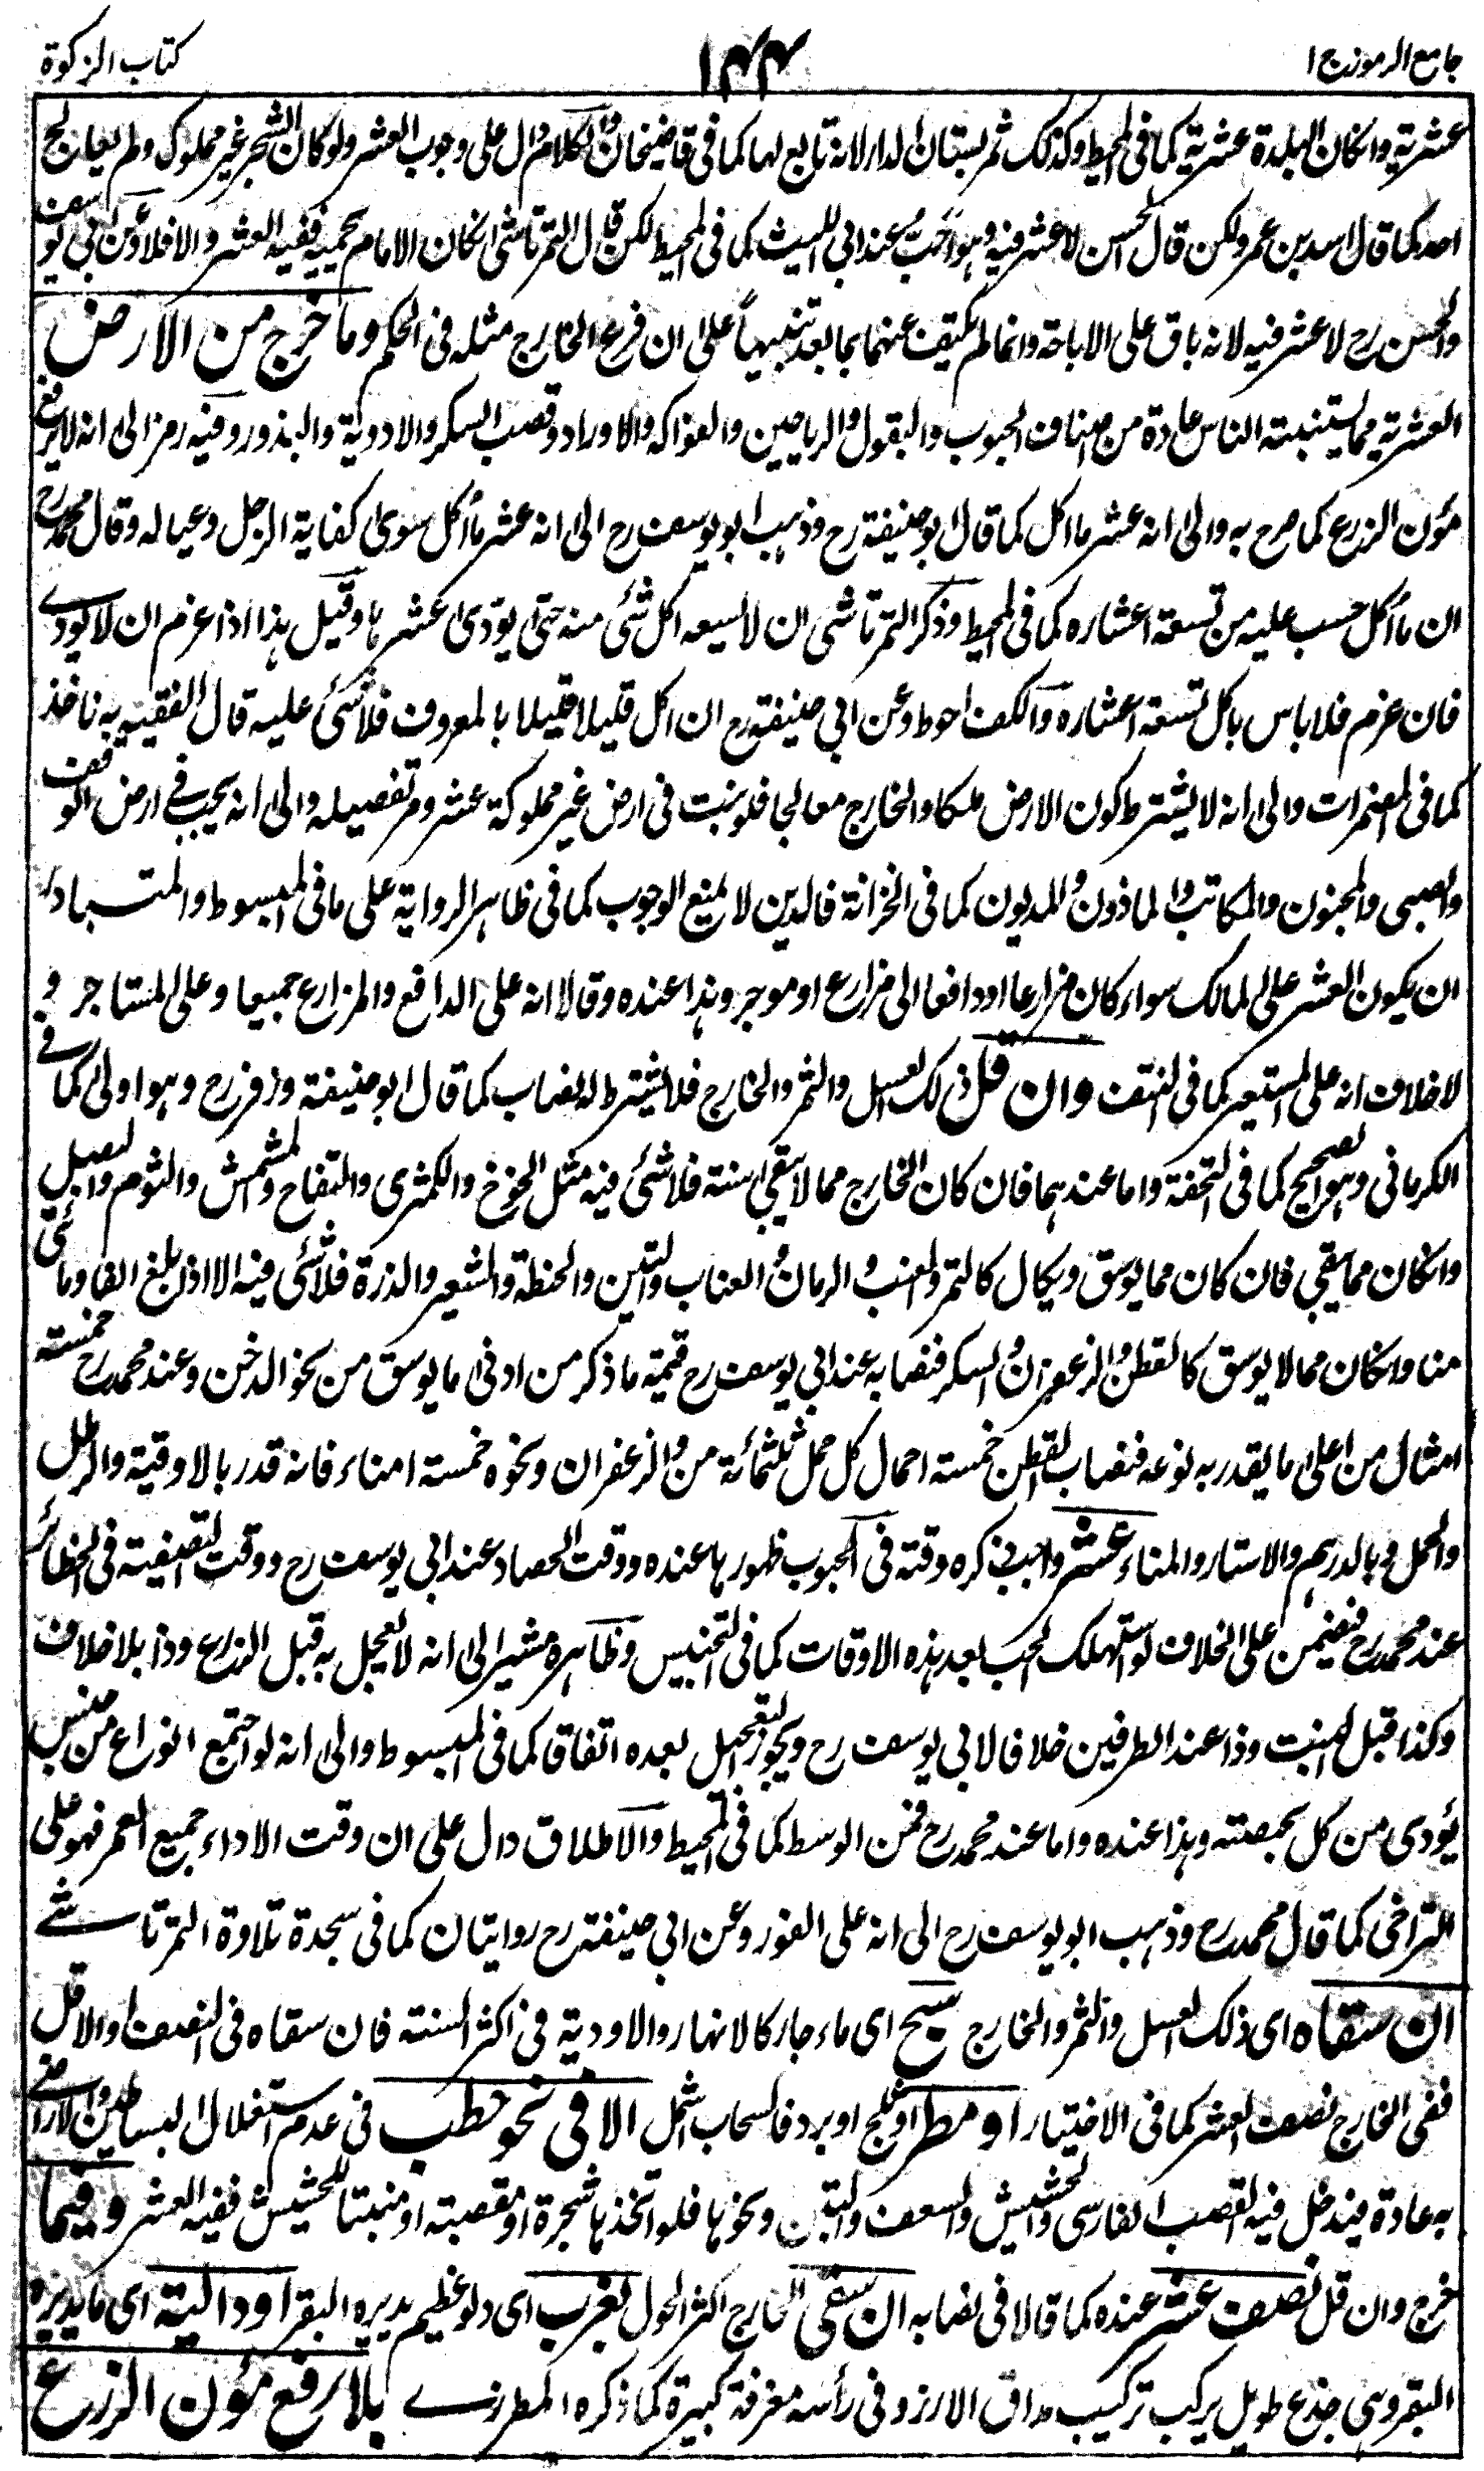 جامع الرموز ج ١
١٤٤
كتاب الزكوة
عشرية وانكان البلدة عشرية كما فى المحيط وكذلك ثمر بستان الدار لانه تابع لها كما فى قاضيخان والكلام دال على وجوب العشر ولو كان الشجر غير مملوك ولم يعالج
احد كما قال اسد بن عمر ولكن قال الحسن لا عشر فيه وهو احب عند ابي الليث كما فى المحيط لكن قال التمرتاشى انكان الامام يحميه ففيه العشر والا فلا وعن ابي يوسف
والحسن رح لا عشر فيه لانه باق على الاباحة وانما لم يكيف عنهما بما بعد تنبيها على ان فرع الخارج مثله فى الحكم وما خرج من الارض
العشرية مما يستنبته الناس عادة من اصناف الحبوب والبقول والرياحين والفواكه والاوراد وقصب السكر والادوية والبذور وفيه رمز الى انه لا يرفع
مؤن الزرع كما صرح به والى انه عشر ما اكل كما قال ابو حنيفة رح وذهب ابو يوسف رح الى انه عشر ما اكل سوى كفاية الرجل وعياله وقال محمد رح
ان ما اكل حسب عليه من تسعة اعشاره كما فى المحيط وذكر التمرتاشى ان لا يسعه اكل شئ منه حتى يؤدى عشرها وقيل هذا اذا عزم ان لا يؤدے
فان عزم فلا باس باكل تسعة اعشاره والكف احوط وعن ابي حنيفة رح ان اكل قليلا قليلا بالمعروف فلا شئ عليه قال الفقيه به ناخذ
كما فى المضمرات والى انه لا يشترط كون الارض ملكا والخارج معالجا فلو نبت فى ارض غير مملوكة عشر ومر تفصيله والى انه يجب فے ارض الوقف
والصبى والمجنون والمكاتب والماذون والمديون كما فى الخزانة فالدين لا يمنع الوجوب كما فى ظاهر الرواية على ما فى المبسوط والمتبادر
ان يكون العشر على المالك سواء كان مزارعا او دافعا الى مزارع او موجر وهذا عنده وقالا انه على الدافع والمزارع جميعا وعلى المستاجر و
لا خلاف انه على المستعير كما فى النتف وان قل ذلك العسل والثمر والخارج فلا يشترط له نصاب كما قال ابو حنيفة وزفر رح وهو اولى كما فے
الكرمانى وهو الصحيح كما فى التحفة واما عندهما فان كان الخارج مما لا يبقى سنة فلا شئ فيه مثل الخوخ والكمثرى والتفاح والمشمش والثوم والبصل
وانكان مما يبقى فان كان مما يوسق ويكال كالتمر والعنب والرمان والعناب والتين والحنطة والشعير والذرة فلا شئ فيه الا اذا بلغ الفا ومائتى
منا وانكان مما لا يوسق كالقطن والزعفران والسكر فنصابه عند ابي يوسف رح قيمة ما ذكر من ادنى ما يوسق من نحو الدخن وعند محمد رح خمسة
امثال من اعلى ما يقدر به نوعه فنصاب القطن خمسة احمال كل حمل ثلثمائة من والزعفران ونحوه خمسة امناء فانه قدر بالاوقية والرطل
والحمل وبالدرهم والاستار والمناء عشر واجب ذكره وقته فى الحبوب ظهورها عنده ووقت الحصاد عند ابي يوسف رح ووقت التصفية فى الحظائر
عند محمد رح فيضمن على الخلاف لو استهلك الحب بعد هذه الاوقات كما فى التجنيس وظاهره مشير الى انه لا يعجل به قبل الزرع وذا بلا خلاف
وكذا قبل النبت وذا عند الطرفين خلافا لابي يوسف رح ويجوز التعجيل بعده اتفاقا كما فى المبسوط والى انه لو اجتمع انواع من جنس
يؤدى من كل بحصته وهذا عنده واما عند محمد رح فمن الوسط كما فى المحيط والاطلاق دال على ان وقت الاداء جميع العمر فهو على
التراخى كما قال محمد رح وذهب ابو يوسف رح الى انه على الفور وعن ابي حنيفة رح روايتان كما فى سجدة تلاوة التمرتاشے
ان سقاه اى ذلك العسل والثمر والخارج سيح اى ماء جار كالانهار والاودية فى اكثر السنة فان سقاه فى النصف او الاقل
ففى الخارج نصف العشر كما فى الاختيار او مطر او ثلج او برد فالسحاب اشمل الا فى نحو حطب فى عدم استغلال البساتين والاراضے
به عادة فيدخل فيه القصب الفارسى والحشيش والسعف والتبن ونحوها فلو اتخذها شجرة او مقصبة او منبتا للحشيش ففيه العشر وفيما
خرج وان قل نصف عشر عنده كما قالا فى نصابه ان سقى الخارج اكثر الحول بغرب اى دلو عظيم يديره البقر او دالية اى ما يديره
البقر وهى جذع طويل يركب تركيب مداق الارز وفى رأسه مغرفة كبيرة كما ذكره المطرزے بلا رفع مؤن الزرع